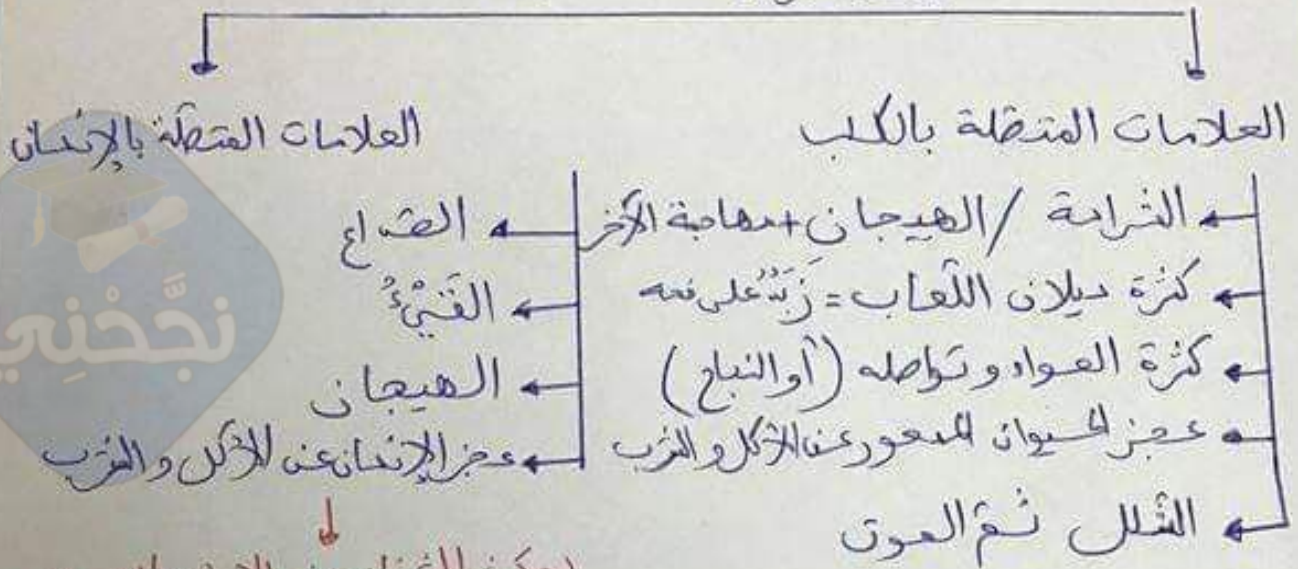 العلامات المتصلة بالكلب
الشراسة / الهيجان + مهاجمة الآخر
كثرة سيلان اللعاب = زَبَدٌ على فمه
كثرة العواء وتواصله (أو النباح)
عجز الحيوان المسعور عن الأكل والشرب
الشلل ثمّ الموت
العلامات المتصلة بالإنسان
الصداع
القَيْءُ
الهيجان
عجز الإنسان عن الأكل والشرب
نَجَّحْنِي